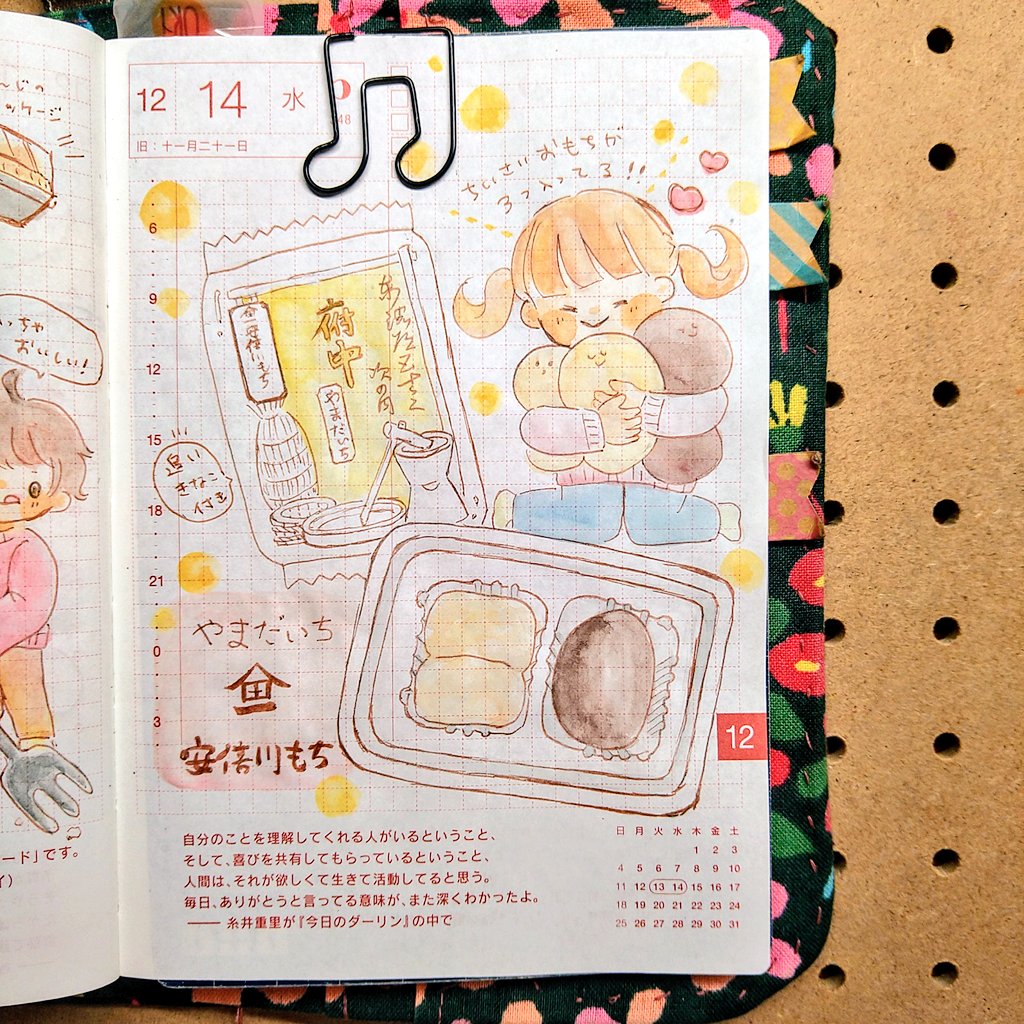 んじの
ッケージ
っちゃ
おいしい!
ード」です。
イ)
12 14 水
48
旧:十一月二十一日
ちいさいおもちが
3つ入ってる!!
6
9
12
15
18
21
0
3
安倍川もち
府中
やまだいち
次の間
追い
きなこ
付き
やまだいち
安倍川もち
12
自分のことを理解してくれる人がいるということ、
そして、喜びを共有してもらっているということ、
人間は、それが欲しくて生きて活動してると思う。
毎日、ありがとうと言ってる意味が、また深くわかったよ。
—— 糸井重里が『今日のダーリン』の中で
日 月 火 水 木 金 土
1 2 3
4 5 6 7 8 9 10
11 12 13 14 15 16 17
18 19 20 21 22 23 24
25 26 27 28 29 30 31